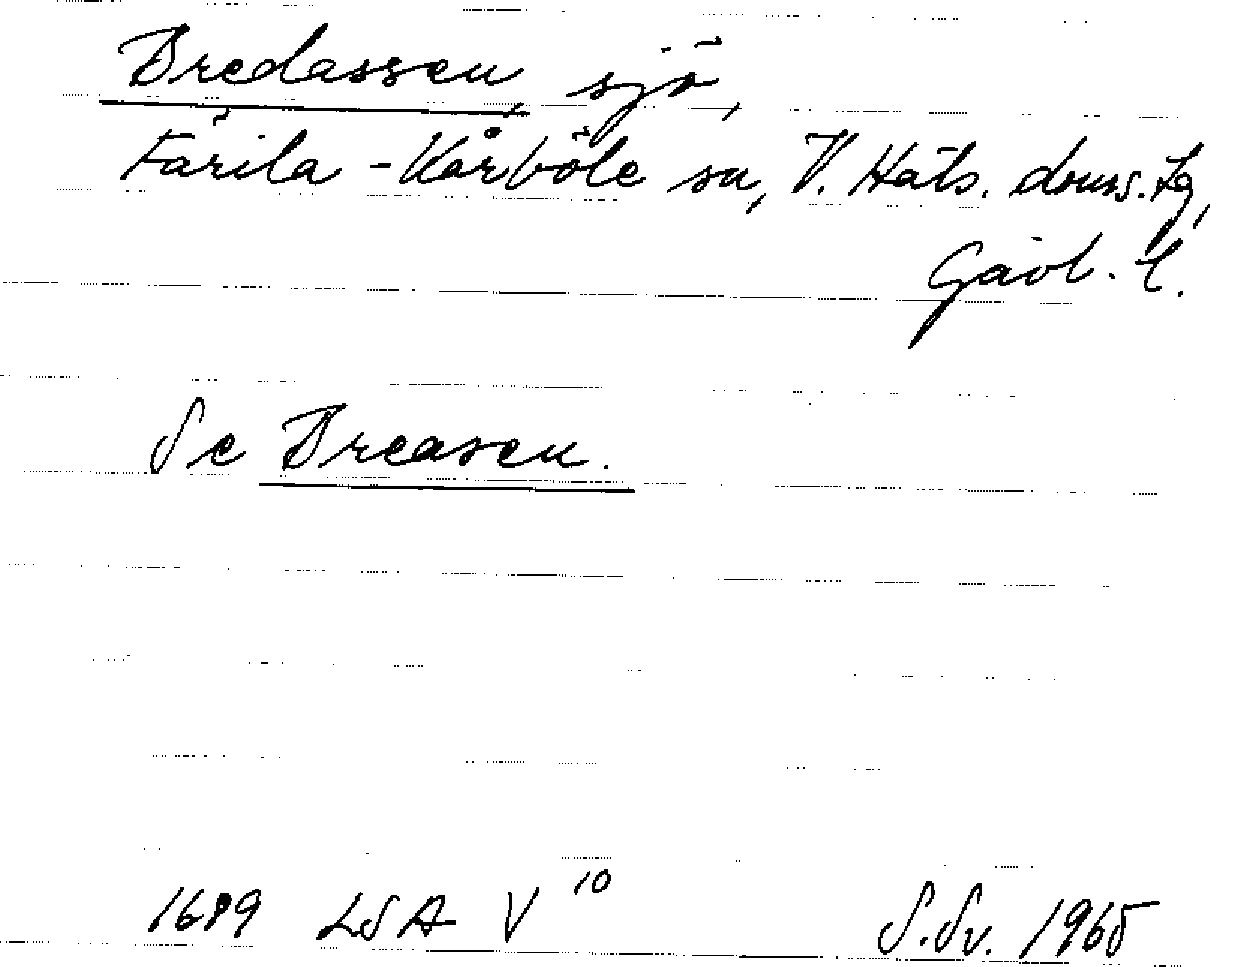 Bredassen, sjö,
Färila-Kårböle sn, V. Häls. doms.
Gävl. l.
Se Breasen.
LSA V 10
S.Sv. 1965